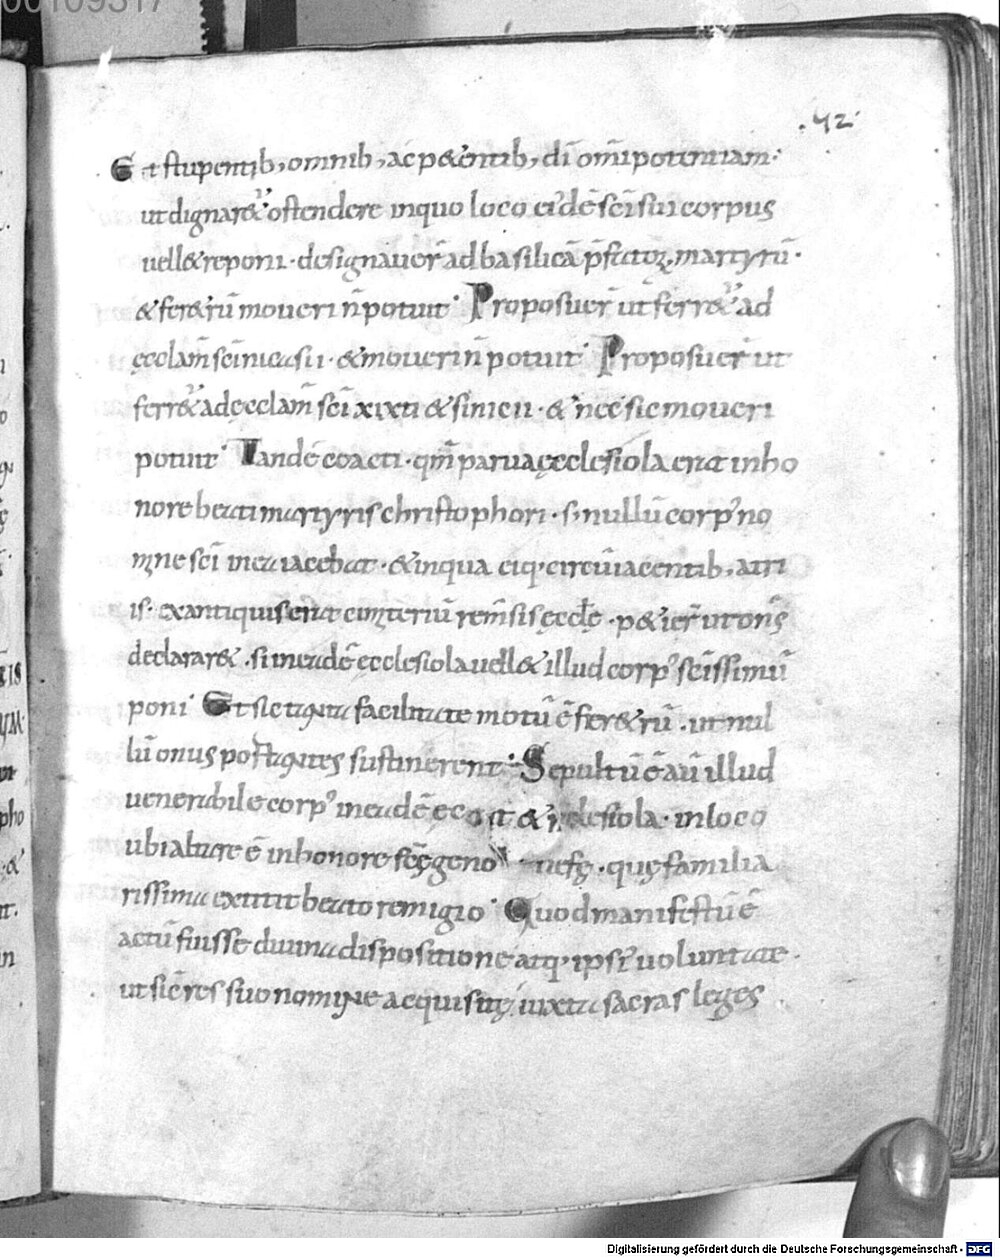 00109317
.42.
Et stupentib; omnib; ac p&entib; dī om̄ipotentiam·
ut dignar&ᷣ ostendere inquo loco ei'dē sc̄i sui corpus
uell& reponi· designauer̄ ad basilicā p̄fatoꝝ martyrū·
& fer&rū moueri n̄ potuit· Proposuer̄ ut ferr&ᷣ ad
ęcclam̄ sc̄i nicasii· & moueri n̄ potuit· Proposuer̄ ut
ferr&ᷣ ad ęcclam̄ sc̄i xixti & sinicii· & nec sic moueri
potuit· Tandē coacti· qm̄ parua ęcclesiola erat inho
nore beati martyris christophori· s; nullū corp' no
mine sc̄i in ea iacebat· & inqua eiq· circūiacentib; atri
is· ex antiquis erat cimiteriū rem̄sis ęccłę· p&ier̄ ut
declarar&· si in eadē ecclesiola uell& illud corp' sc̄issimū
poni· Et sic tanta facilitate motū ē fer&rū· ut nul
lū onus portantes sustinerent· Sepultū ē aū illud
uenerabile corp' in eadē ecclesiola· in loco
ubi altare ē inhonore sc̄ę geno uefę· quę familia
rissima extitit beato remigio· Quod manifestū ē
actū fuisse diuina dispositione atq· ipsi' uoluntate·
ut sic̄ res suo nomine acquisitę iuxta sacras leges
Digitalisierung gefördert durch die Deutsche Forschungsgemeinschaft - DFG